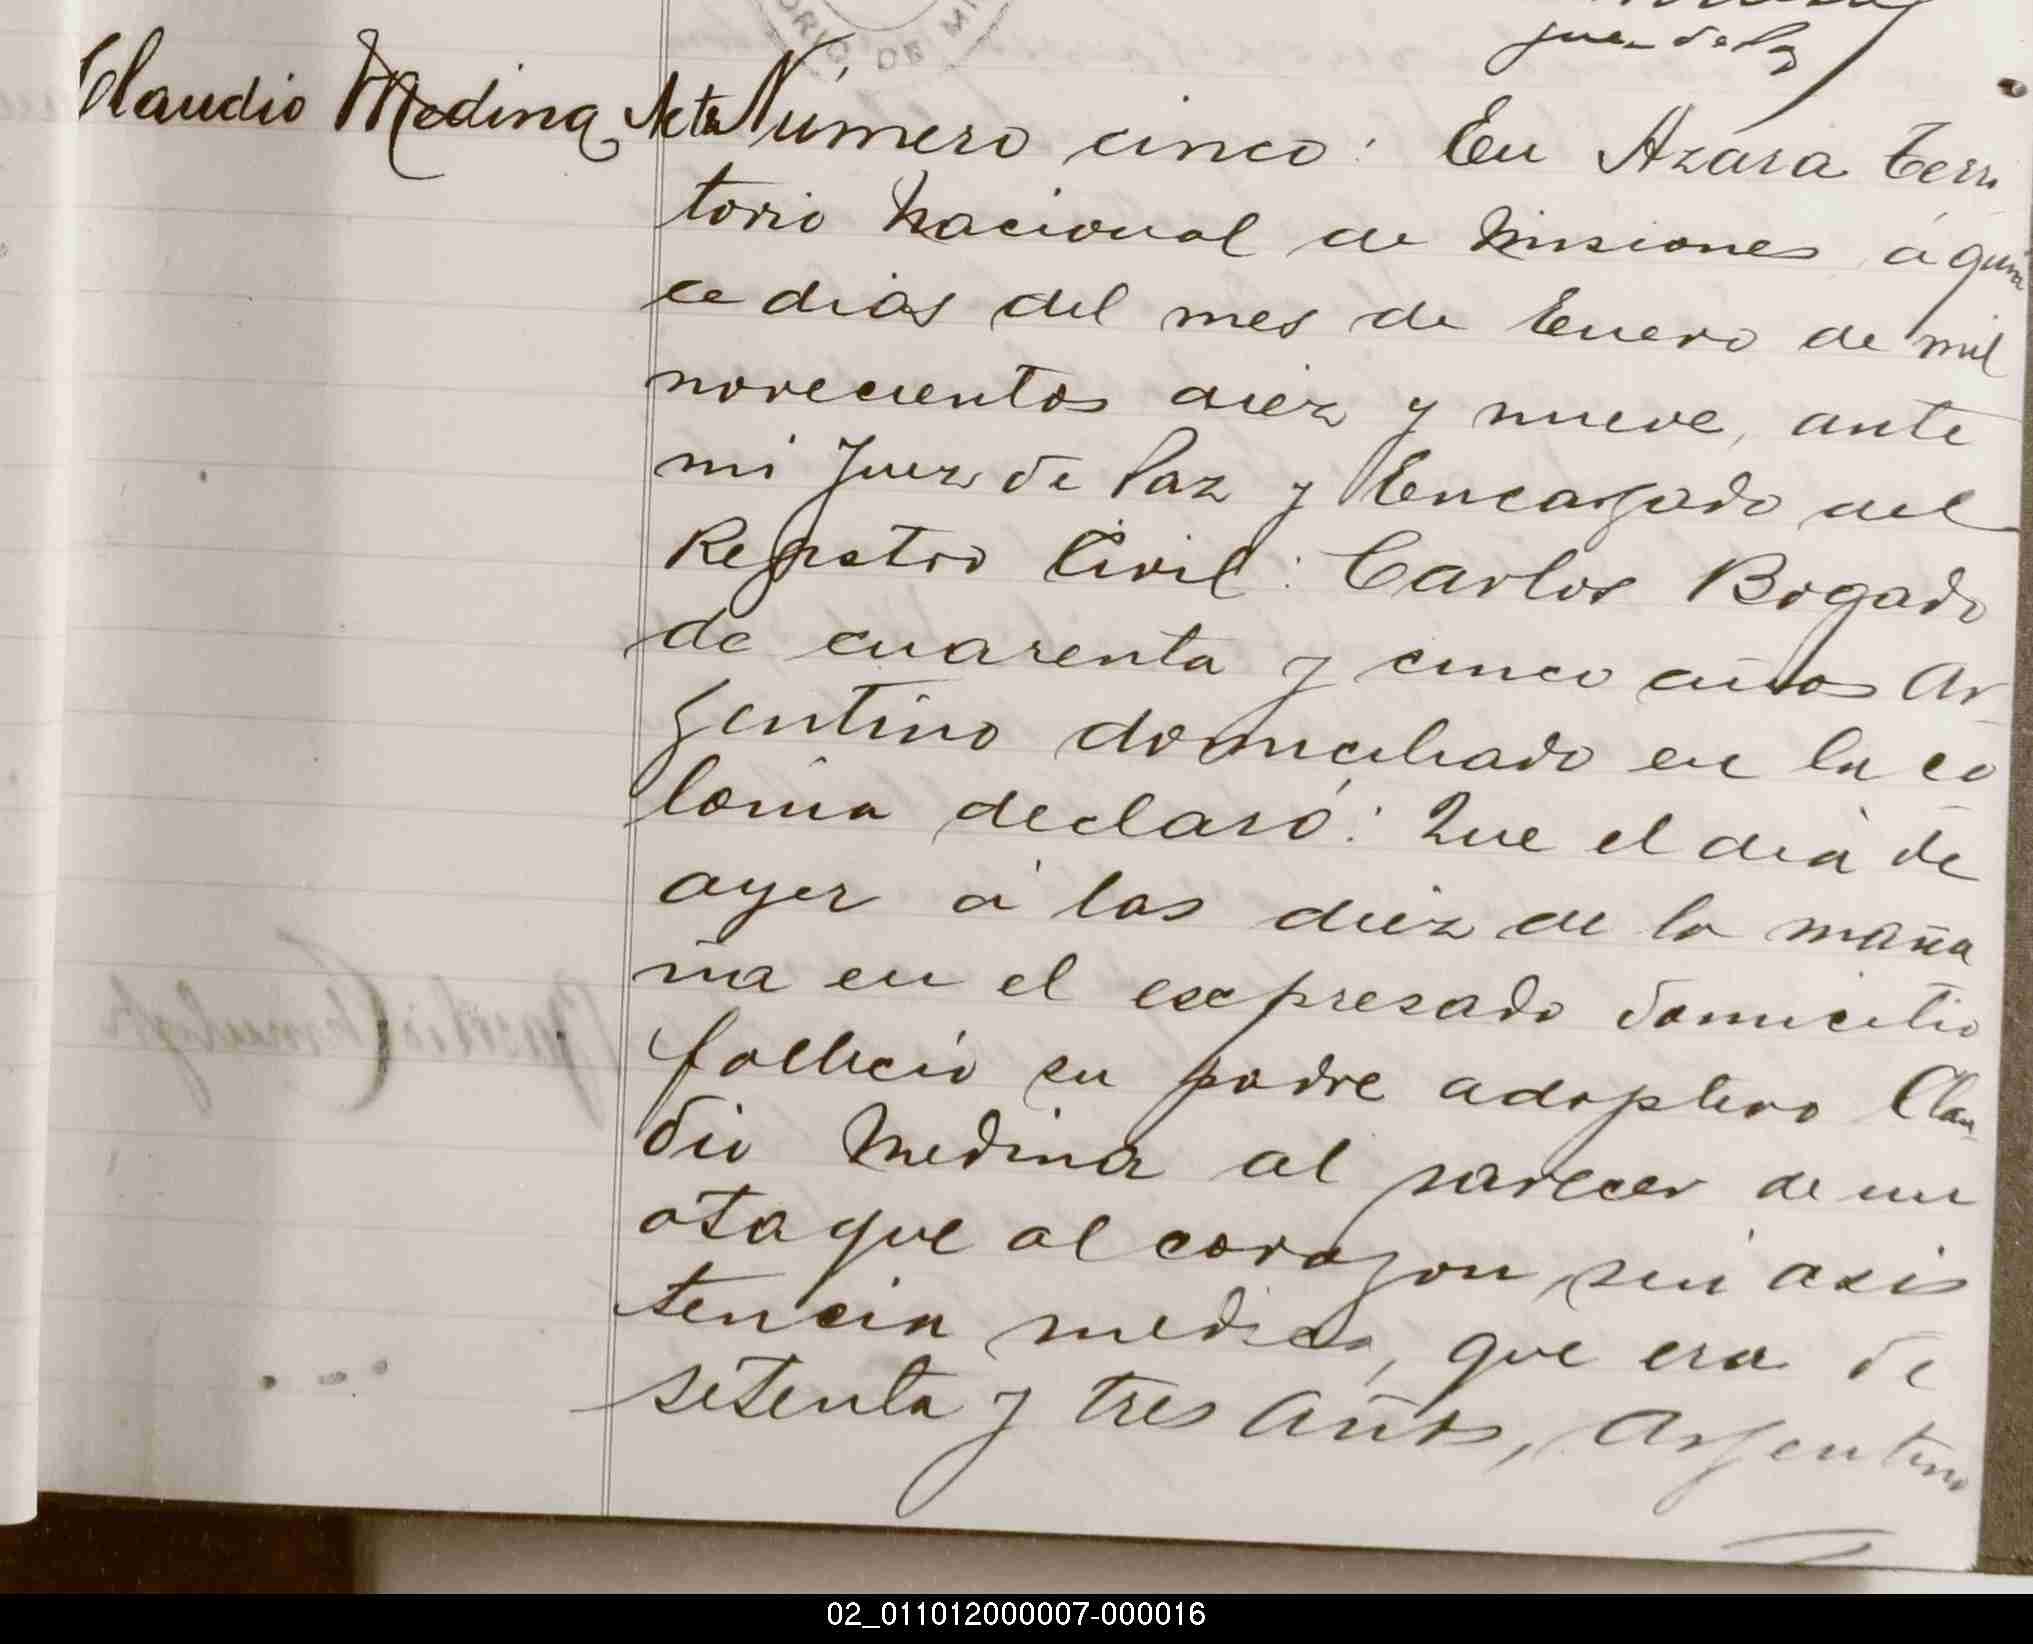 ORIO DE MI
juez de Paz
Claudio Medina
Acta Número cinco: En Azara Terri
torio Nacional de Misiones á quin
ce dias del mes de Enero de mil
novecientos diez y nueve, ante
mi Juez de Paz y Encargado del
Registro Civil: Carlos Bogado
de cuarenta y cinco años Ar
gentino domiciliado en la co
lonia declaró: Que el dia de
ayer á las diez de la maña
ña en el expresado domicilio
falleció su padre adoptivo Clau
dio Medina al parecer de un
ataque al corazon sin asis
tencia medica, que era de
setenta y tres años, Argentino
02_011012000007-000016